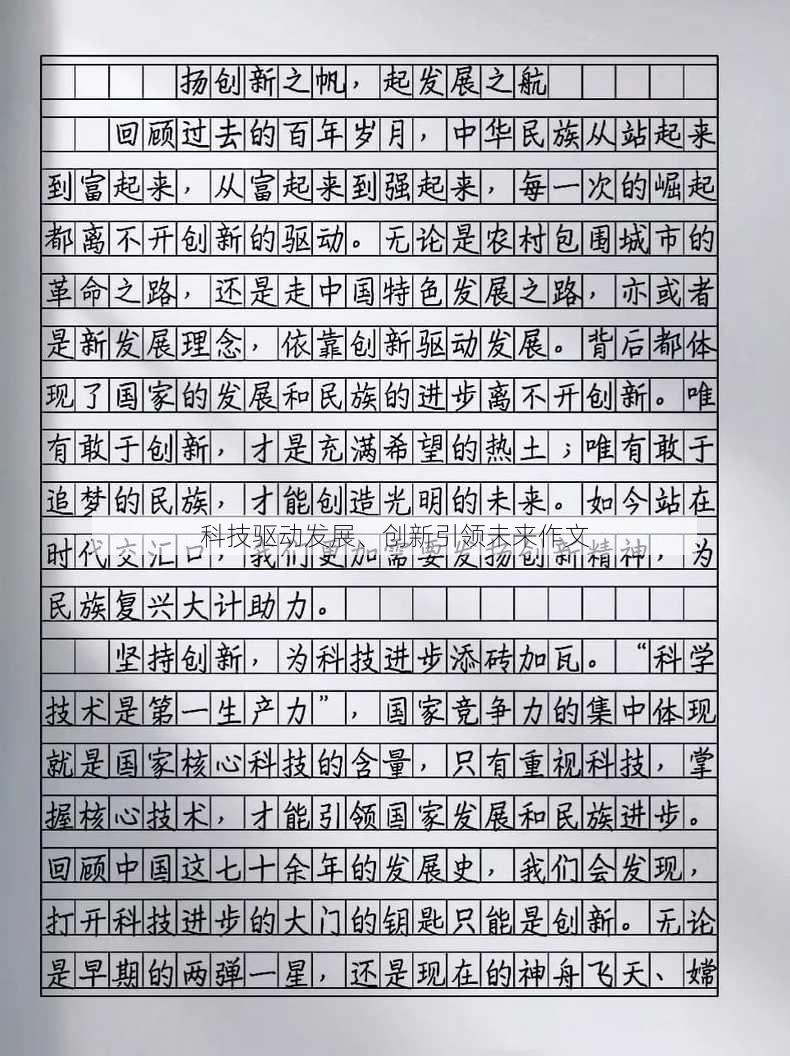 扬创新之帆，起发展之航
回顾过去的百年岁月，中华民族从站起来
到富起来，从富起来到强起来，每一次的崛起
都离不开创新的驱动。无论是农村包围城市的
革命之路，还是走中国特色发展之路，亦或者
是新发展理念，依靠创新驱动发展。背后都体
现了国家的发展和民族的进步离不开创新。唯
有敢于创新，才是充满希望的热土；唯有敢于
追梦的民族，才能创造光明的未来。如今站在
科技驱动发展、创新引领未来作文
时代交汇口，我们更加需要发扬创新精神，为
民族复兴大计助力。
坚持创新，为科技进步添砖加瓦。“科学
技术是第一生产力”，国家竞争力的集中体现
就是国家核心科技的含量，只有重视科技，掌
握核心技术，才能引领国家发展和民族进步。
回顾中国这七十余年的发展史，我们会发现，
打开科技进步的大门的钥匙只能是创新。无论
是早期的两弹一星，还是现在的神舟飞天、嫦